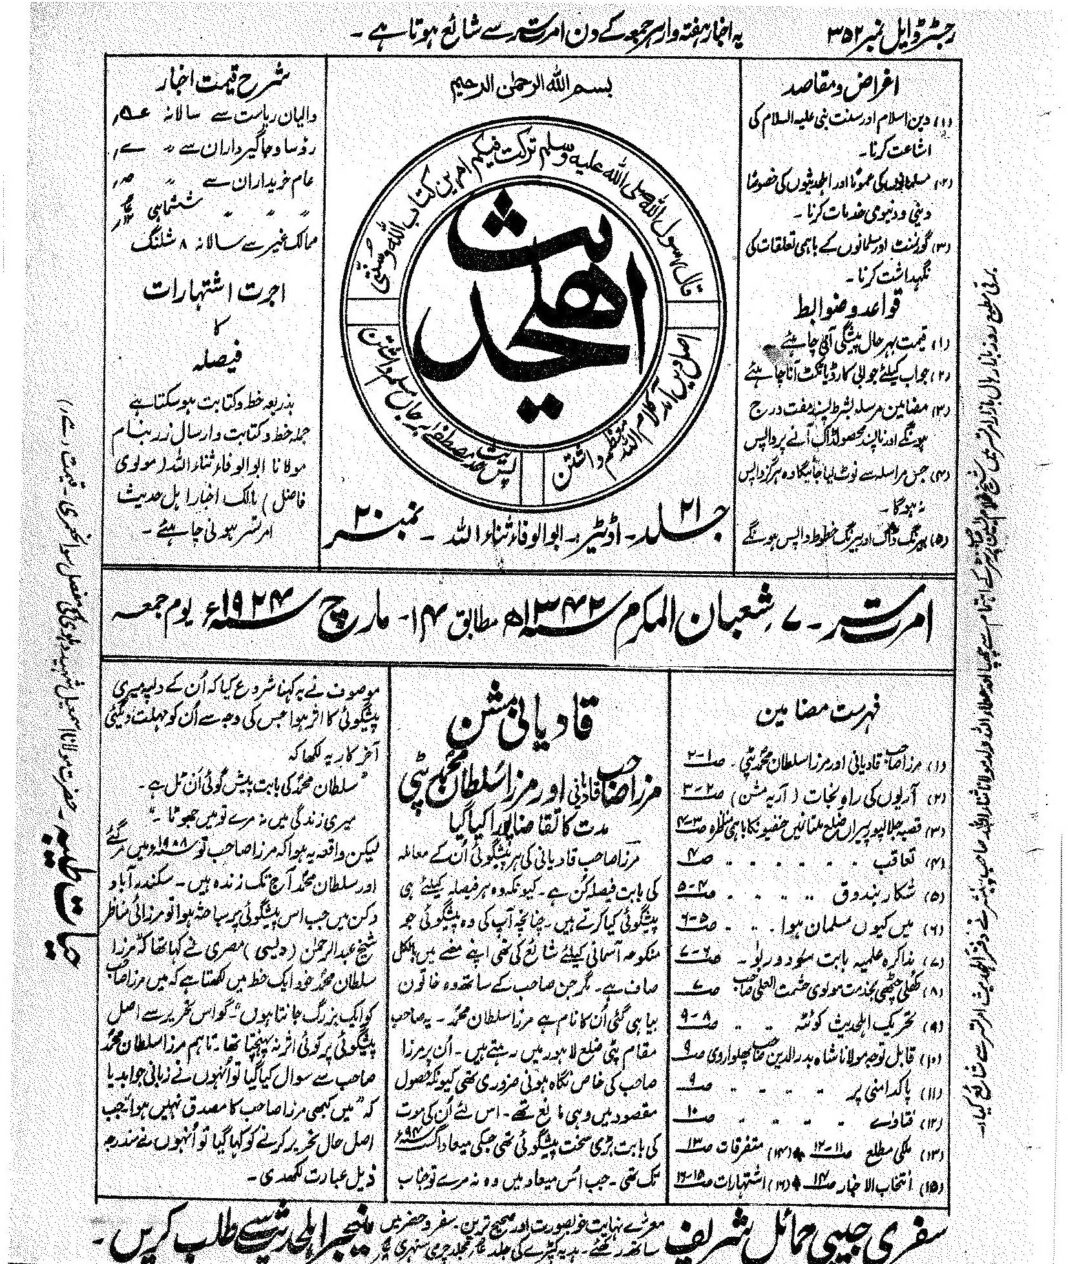 رجسٹرڈ ایل نمبر ۳۵۲
یہ اخبار ہفتہ وار ہر جمعہ کے دن امرتسر سے شائع ہوتا ہے۔
اغراض و مقاصد
(۱) دین اسلام اور سنت نبی علیہ السلام کی
اشاعت کرنا۔
(۲) مسلمانوں کی عموماً اور اہلحدیثوں کی خصوصاً
دینی و دنیوی خدمات کرنا۔
(۳) گورنمنٹ اور مسلمانوں کے باہمی تعلقات کی
نگہداشت کرنا۔
قواعد و ضوابط
(۱) قیمت بہر حال پیشگی آنی چاہئے
(۲) جواب کیلئے جوابی کارڈ یا ٹکٹ آنا چاہئے
(۳) مضامین مرسلہ بشرط پسند مفت درج
ہونگے اور ناپسند محصولڈاک آنے پر واپس
(۴) جس مراسلہ سے نوٹ لیا جائیگا وہ ہرگز واپس
نہ ہوگا۔
(۵) بیرنگ ڈاک اور بیرنگ خطوط واپس ہونگے
بسم اللہ الرحمٰن الرحیم
قال رسول اللہ صلی اللہ علیہ وسلم ترکت فیکم امرین کتاب اللہ وسنتی
اہلحدیث
اصل دین آمد کلام اللہ معظم داشتن
پس حدیث مصطفےٰ بر جاں مسلم داشتن
جلد ۲۱۔ اڈیٹر:۔ ابو الوفاء ثناء اللہ۔ نمبر ۲۰
شرح قیمت اخبار
والیان ریاست سے سالانہ
رؤسا و جاگیرداران سے
عام خریداران سے
ششماہی
ممالک غیر سے سالانہ ۸ شلنگ
اجرت اشتہارات
کا
فیصلہ
بذریعہ خط و کتابت ہو سکتا ہے
جملہ خط و کتابت و ارسال زر بنام
مولانا ابو الوفاء ثناء اللہ (مولوی
فاضل) مالک اخبار اہل حدیث
امرتسر ہونی چاہئے۔
امرتسر۔ ۷ شعبان المکرم ۱۳۴۲ھ مطابق ۱۴۔ مارچ ۱۹۲۴ء یوم جمعہ
فہرست مضامین
(۱) مرزا صاحب قادیانی اور مرزا سلطان محمد پٹی۔ ص ۱-۲
(۲) آریوں کی راہ نجات (آریہ مشن) ص ۲-۳
(۳) قصبہ جلالپور پیراں ضلع ملتان میں حنفیوں کا باہمی مناظرہ ص ۳-۴
(۴) تعاقب ص ۴
(۵) شکار بندوق ص ۴-۵
(۶) میں کیوں مسلمان ہوا ص ۵-۶
(۷) مذاکرہ علمیہ بابت سود و ربوٰ۔ ص ۶-۷
(۸) کھلی چٹھی بخدمت مولوی حشمت العلی صاحب ص ۷
(۹) تحریک اہلحدیث کوئٹہ ص ۸-۹
(۱۰) قابل توجہ مولانا شاہ بدر الدین صاحب پھلواروی ص ۹
(۱۱) پاکدامنی پر ص ۹
(۱۲) فتاوے ص ۱۰
(۱۳) ملکی مطلع ص ۱۱-۱۲ (۱۴) متفرقات ص ۱۳
(۱۵) انتخاب الاخبار ص ۱۴ (۱۶) اشتہارات ص ۱۵-۱۶
قادیانی مشن
مرزا صاحب قادیانی اور مرزا سلطان محمد پٹی
مدت کا تقاضا پورا کیا گیا
مرزا صاحب قادیانی کی ہر پیشگوئی اُن کے معاملہ
کی بابت فیصلہ کن ہے۔ کیونکہ وہ ہر فیصلہ کیلئے ہی
پیشگوئی کیا کرتے ہیں۔ چنانچہ آپ کی وہ پیشگوئی جو
منکوحہ آسمانی کیلئے شائع کی تھی اپنے معنے میں بالکل
صاف ہے۔ مگر جن صاحب کے ساتھ وہ خاتون
بیاہی گئی اُن کا نام ہے مرزا سلطان محمد۔ یہ صاحب
مقام پٹی ضلع لاہور میں رہتے ہیں۔ اُن پر مرزا
صاحب کی خاص نگاہ ہونی ضروری تھی کیونکہ حصول
مقصود میں وہی مانع تھے۔ اس لئے اُن کی موت
کی بابت بڑی سخت پیشگوئی تھی جسکی میعاد اگست ۹۴ء
تک تھی۔ جب اُس میعاد میں وہ نہ مرے تو جناب
موصوف نے یہ کہنا شروع کیا کہ اُن کے دلپہ میری
پیشگوئی کا اثر ہوا جس کی وجہ سے اُن کو مہلت دیگئی
آخرکار یہ لکھا کہ
"سلطان محمد کی بابت پیش گوئی اٹل ہے۔
میری زندگی میں نہ مرے تو میں جھوٹا۔"
لیکن واقعہ یہ ہوا کہ مرزا صاحب تو ۱۹۰۸ء میں مر گئے
اور سلطان محمد آج تک زندہ ہیں۔ سکندر آباد
دکن میں جب اس پیشگوئی پر مباحثہ ہوا تو مرزائی مناظر
شیخ عبدالرحمٰن (دیسی) مصری نے کہا تھا کہ "مرزا
سلطان محمد خود ایک خط میں لکھتا ہے کہ میں مرزا صاحب
کو ایک بزرگ جانتا ہوں" گو اس تحریر سے اصل
پیشگوئی پر کوئی اثر نہ پہنچتا تھا۔ تاہم مرزا سلطان محمد
صاحب سے سوال کیا گیا تو اُنہوں نے زبانی جواب دیا
کہ "میں کبھی مرزا صاحب کا مصدق نہیں ہوا" جب
اصل حال تحریر کرنے کو کہا گیا تو اُنہوں نے مندرجہ
ذیل عبارت لکھدی۔
سفری جیبی حمائل شریف
معرےٰ نہایت خوبصورت اور صحیح ترین۔ سفر و حضر میں
ساتھ رکھئے۔ ہدیہ کپڑے کی جلد
منیجر اہلحدیث سے طلب کریں۔
حیات طیبہ۔ حضرت مولانا اسمعیل شہید دہلوی کی مفصل سوانحمری۔ قیمت